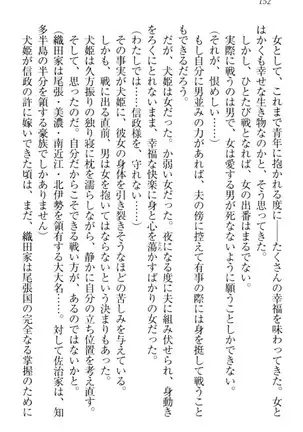 152
女として、これまで青年に抱かれる度に――たくさんの幸福を味わってきた。女と
はかくも幸せな生き物なのかと、そう思ってきた。
だが、ひとたび戦となれば、女の出番はまるでない。
実際に戦うのは男で、女は愛する男が死なないように願うことしかできない。
(それが、恨めしい……)
もし自分に男並みの力があれば、夫の傍に控えて有事の際には身を挺して戦うこと
もできるだろう。
だが、犬姫は女だった。か弱い女だった。夜になる度に夫に組み伏せられ、身動き
をろくにとれないまま、幸福な快楽に身と心を蕩かすばかりの女だった。
(わたしでは……信政様を、守れない……)
その事実が犬姫に、彼女の身体を引き裂きそうなほどの苦しみを与えている。
しかも、戦に出る直前、男は女を抱いてはならないという決まりもあった。
犬姫は久方振りの独り寝に枕を濡らしながら、静かに自分の立ち位置を考え直す。
そして、思ったのだ。自分だからこそできる戦い方が、あるのではないかと。
(織田家は尾張・美濃、南近江、北伊勢を領有する大大名……。対して佐治家は、知
多半島の半分を領する豪族でしかありません)
犬姫が信政の許に嫁いできた頃は、まだ、織田家は尾張国の完全なる掌握のために